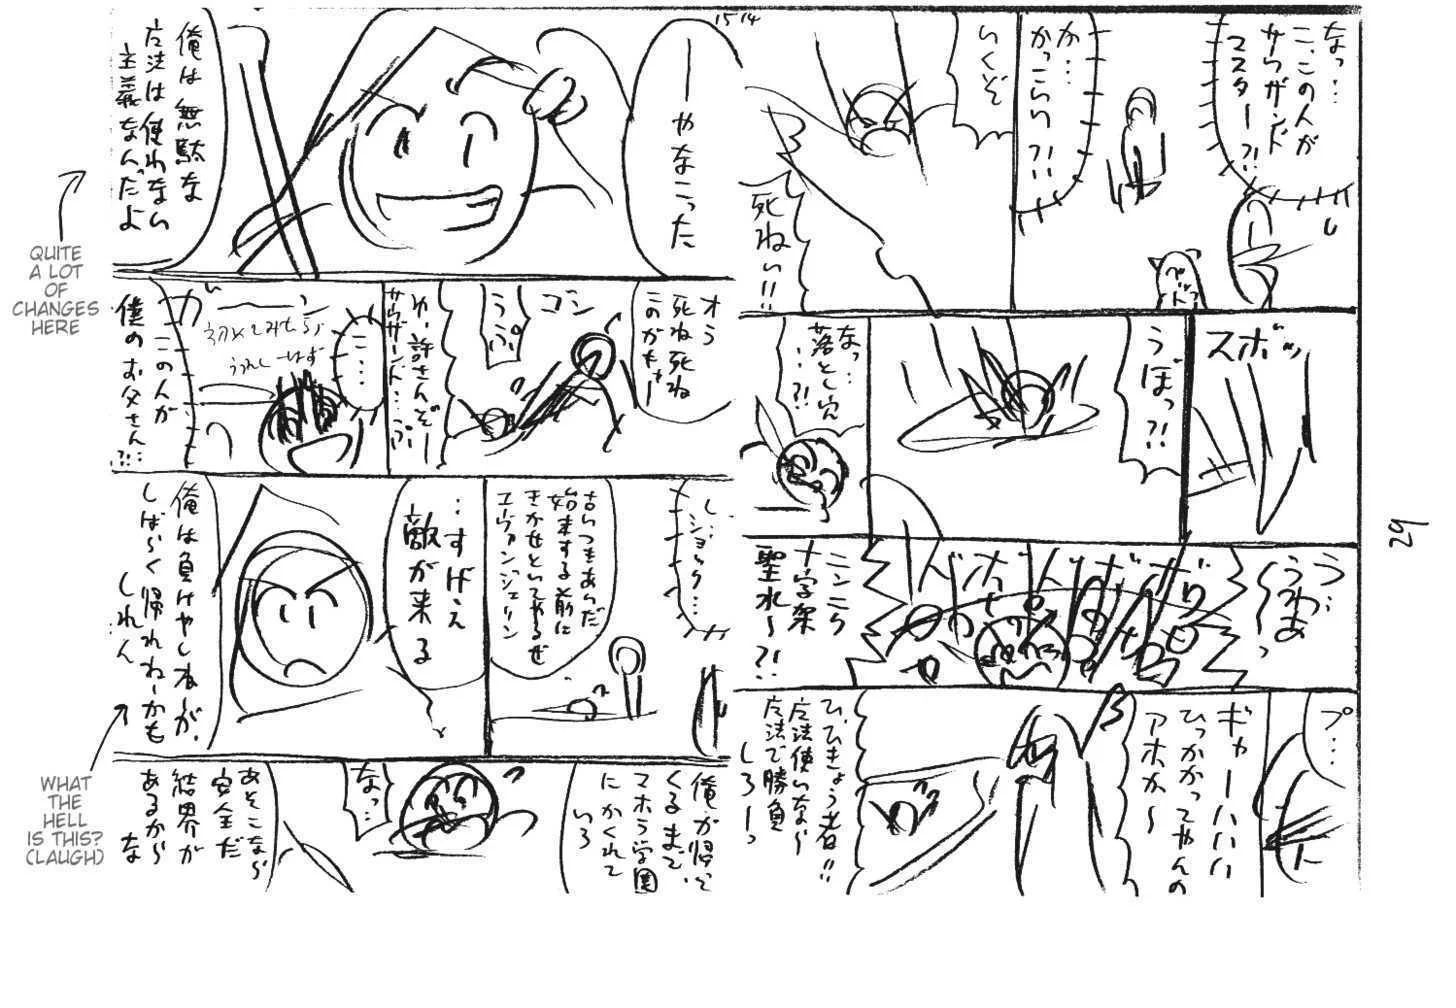 15 14
29
なっ…
こ、この人が
サウザンド
マスター?!
か…
かっこらい?!
いくぞ
死ねい!!
スボッ
うぼっ?!
なっ…
落とし穴
…?!
う…
うわあ
〜っ
ニンニク
十字架
聖水〜?!
プ…
ギャーハハハ
ひっかかってやんの
アホか〜
ひ、ひきょう者!!
方法使いなら
方法で勝負
しろーっ
ーやなこった
俺は無駄な
方法は使わない
主義なんだよ
QUITE
A LOT
OF
CHANGES
HERE
オラ
死ね死ね
このガキー
ゴン
うぷっ
ゆ、許さんぞー
サウザンド…ぷ
こ…
この人が
僕のお父さん…?!
し…
ショック…
始末する前に
きかせといてやるぜ
エヴァンジェリン
…すげえ
敵が来る
俺は負けやしねーが、
しばらく帰れねーかも
しれん
WHAT
THE
HELL
IS THIS?
(LAUGH)
俺が帰って
くるまで、
マホラ学園
にかくれて
いろ
なっ…
あそこなら
安全だ
結界が
あるから
な